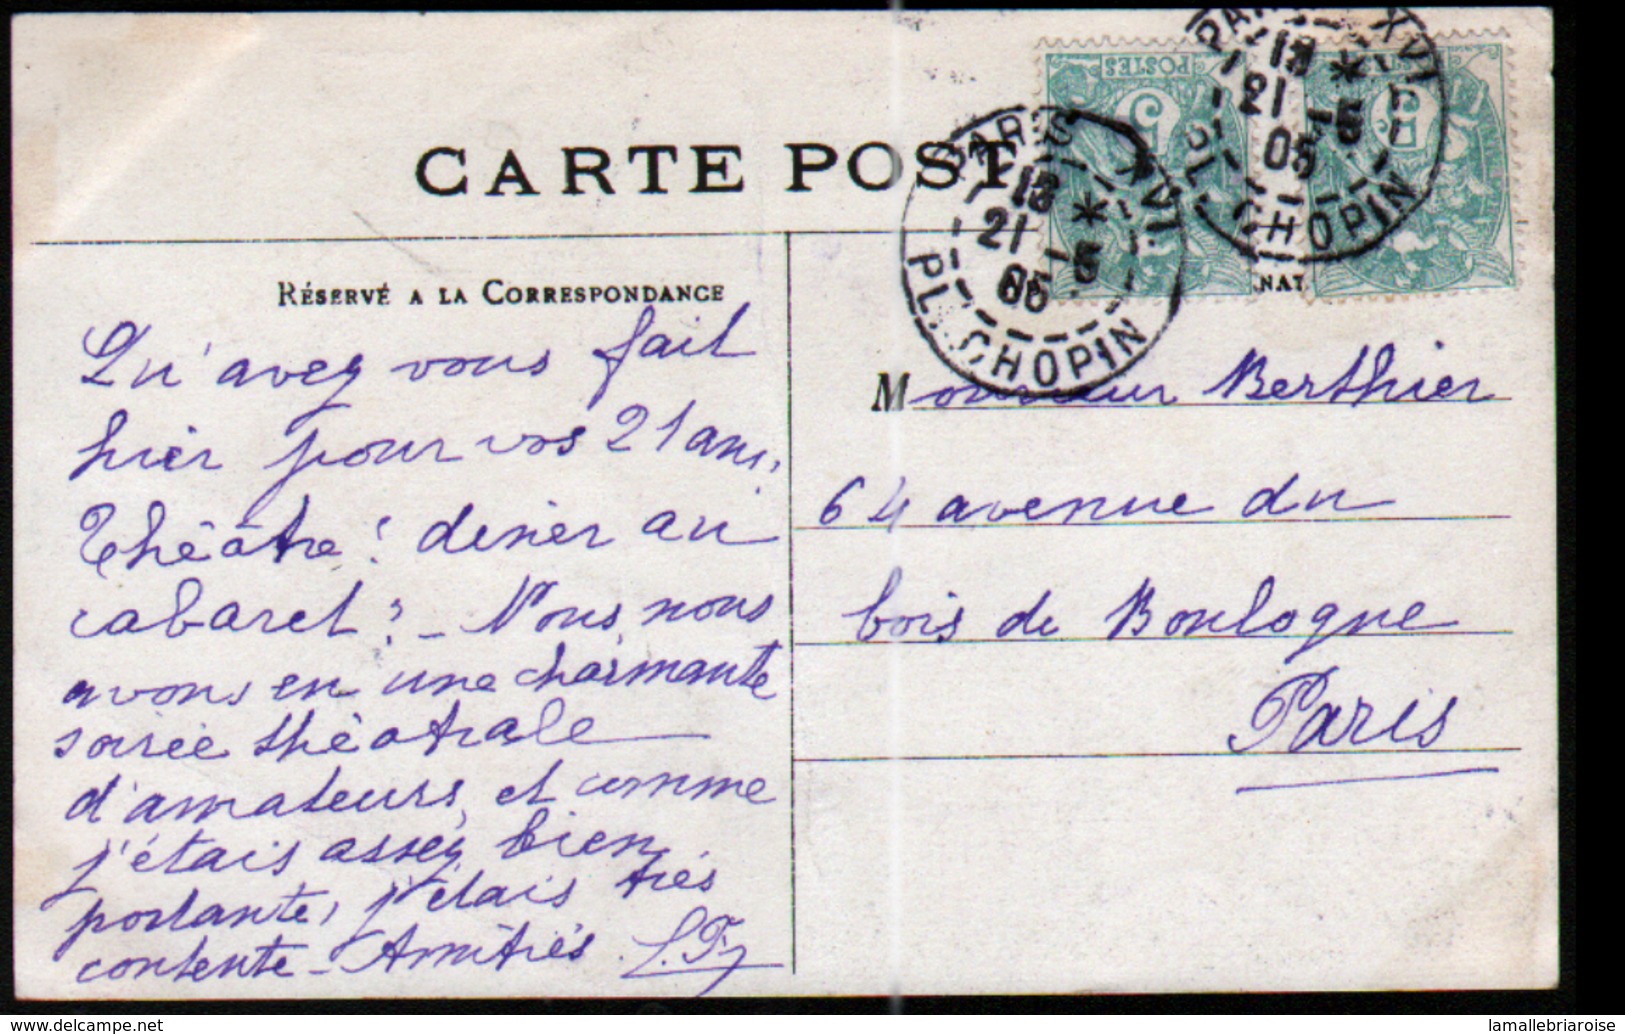 CARTE POST
RÉSERVÉ A LA CORRESPONDANCE
Qu'avez vous fait
hier pour vos 21 ans.
Théâtre! diner au
cabaret? - Nous, nous
avons en une charmante
soirée théatrale
d'amateurs, et comme
j'étais assez bien
portante, j'étais très
contente - Amitiés
PARIS XVI
13 *
21 - 5
05
PL. CHOPIN
PARIS XVI
13 *
21 - 5
05
PL. CHOPIN
POSTES
5
5
NAT
Monsieur Berthier
64 avenue du
bois de Boulogne
Paris
delcampe.net
lamallebriaroise